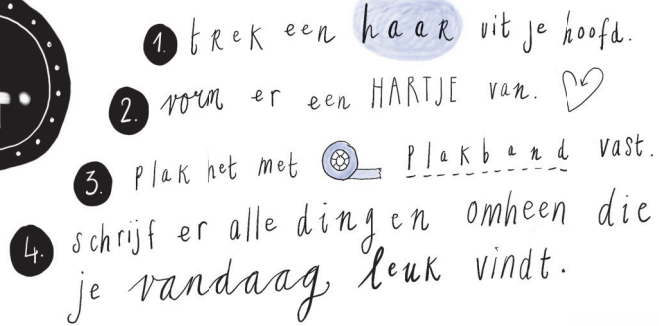 1. trek een haar uit je hoofd.
2. vorm er een HARTJE van.
3. plak het met plakband vast.
4. schrijf er alle dingen omheen die
je vandaag leuk vindt.